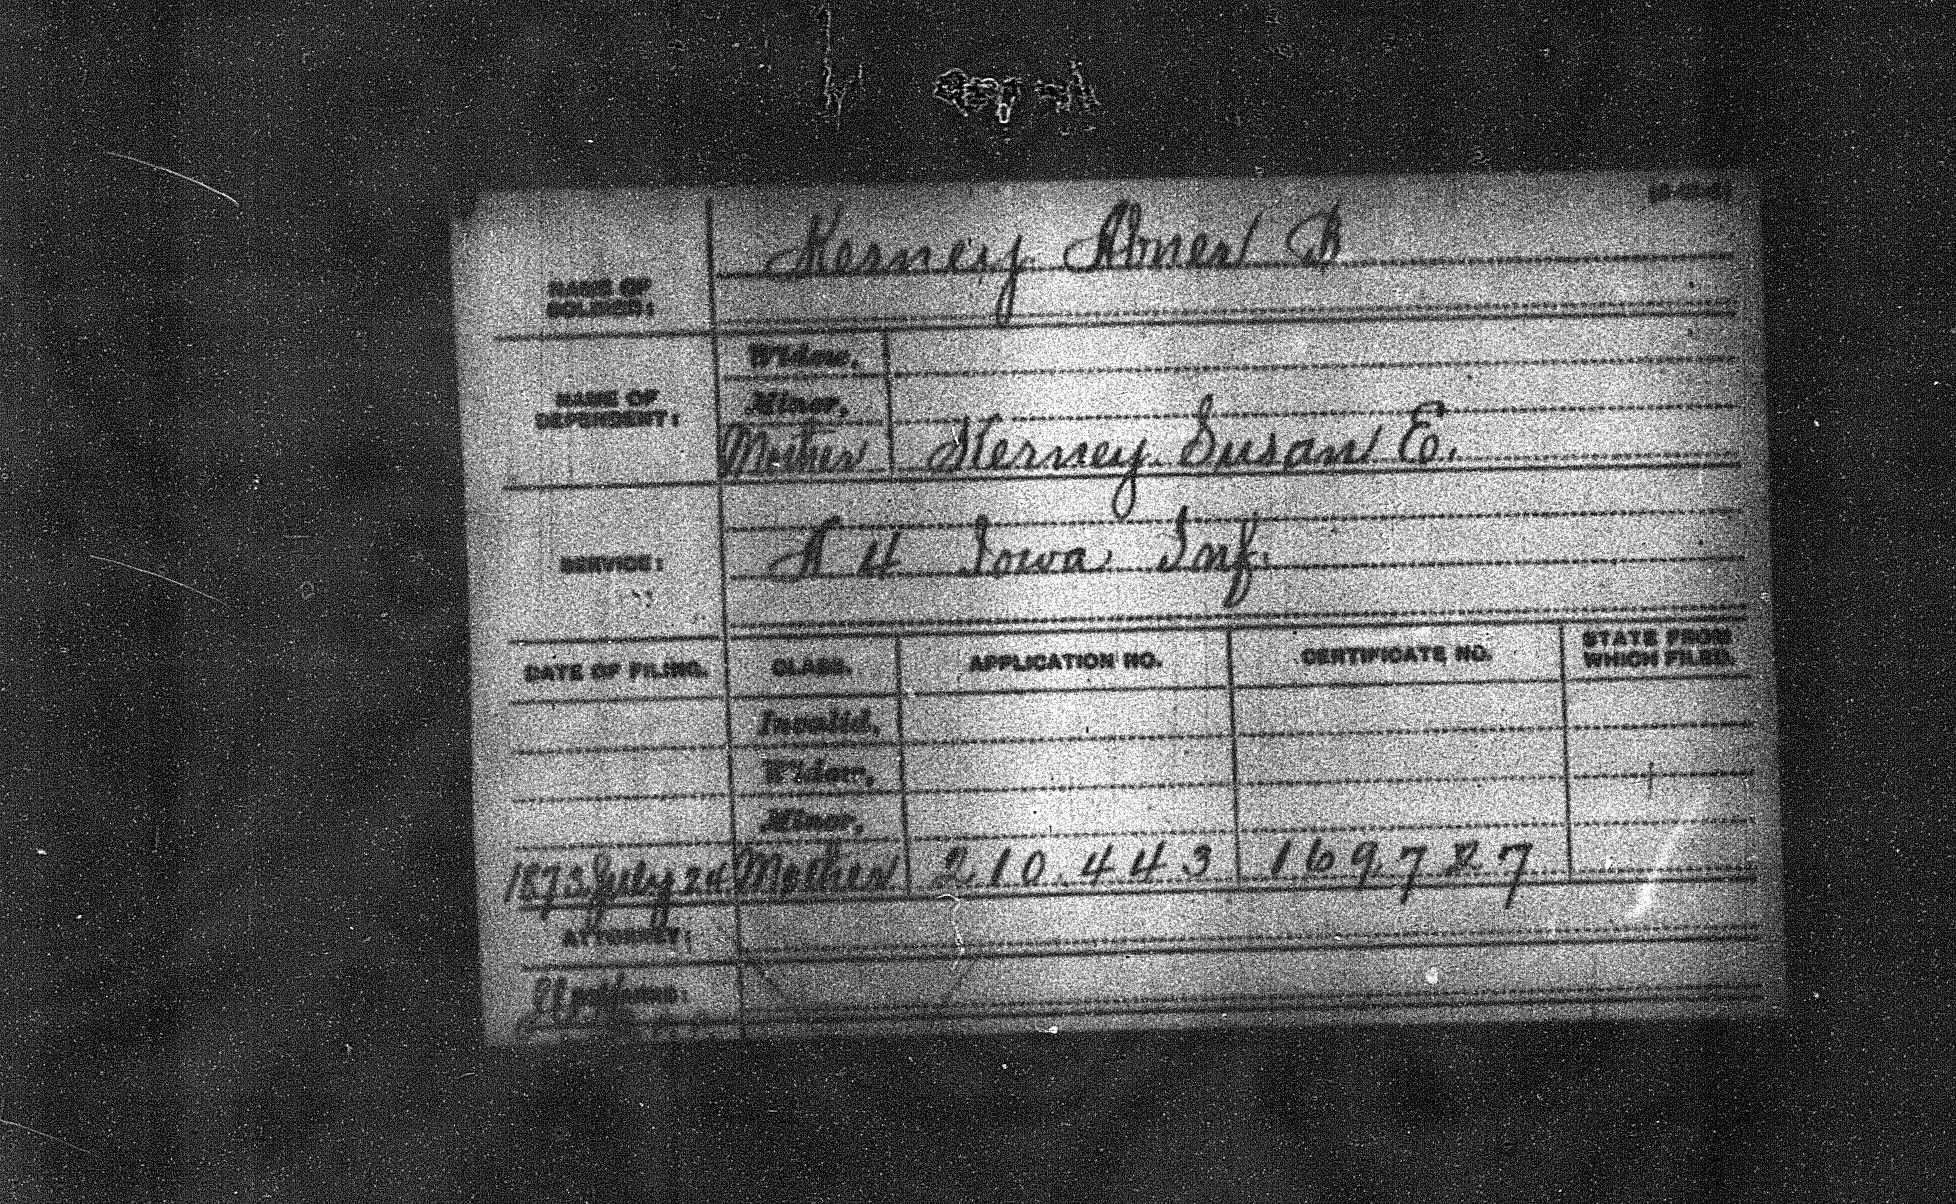 Kerney Abner B
NAME OF
SOLDIER:
Widow,
NAME OF
DEPENDENT:
Minor,
Mother Kerney Susan E.
SERVICE: A 4 Iowa Inf.
DATE OF FILING. CLASS. APPLICATION NO. CERTIFICATE NO. STATE FROM
WHICH FILED.
Invalid,
Widow,
Minor,
1873 July 24 Mother 210.443 169787
ATTORNEY: